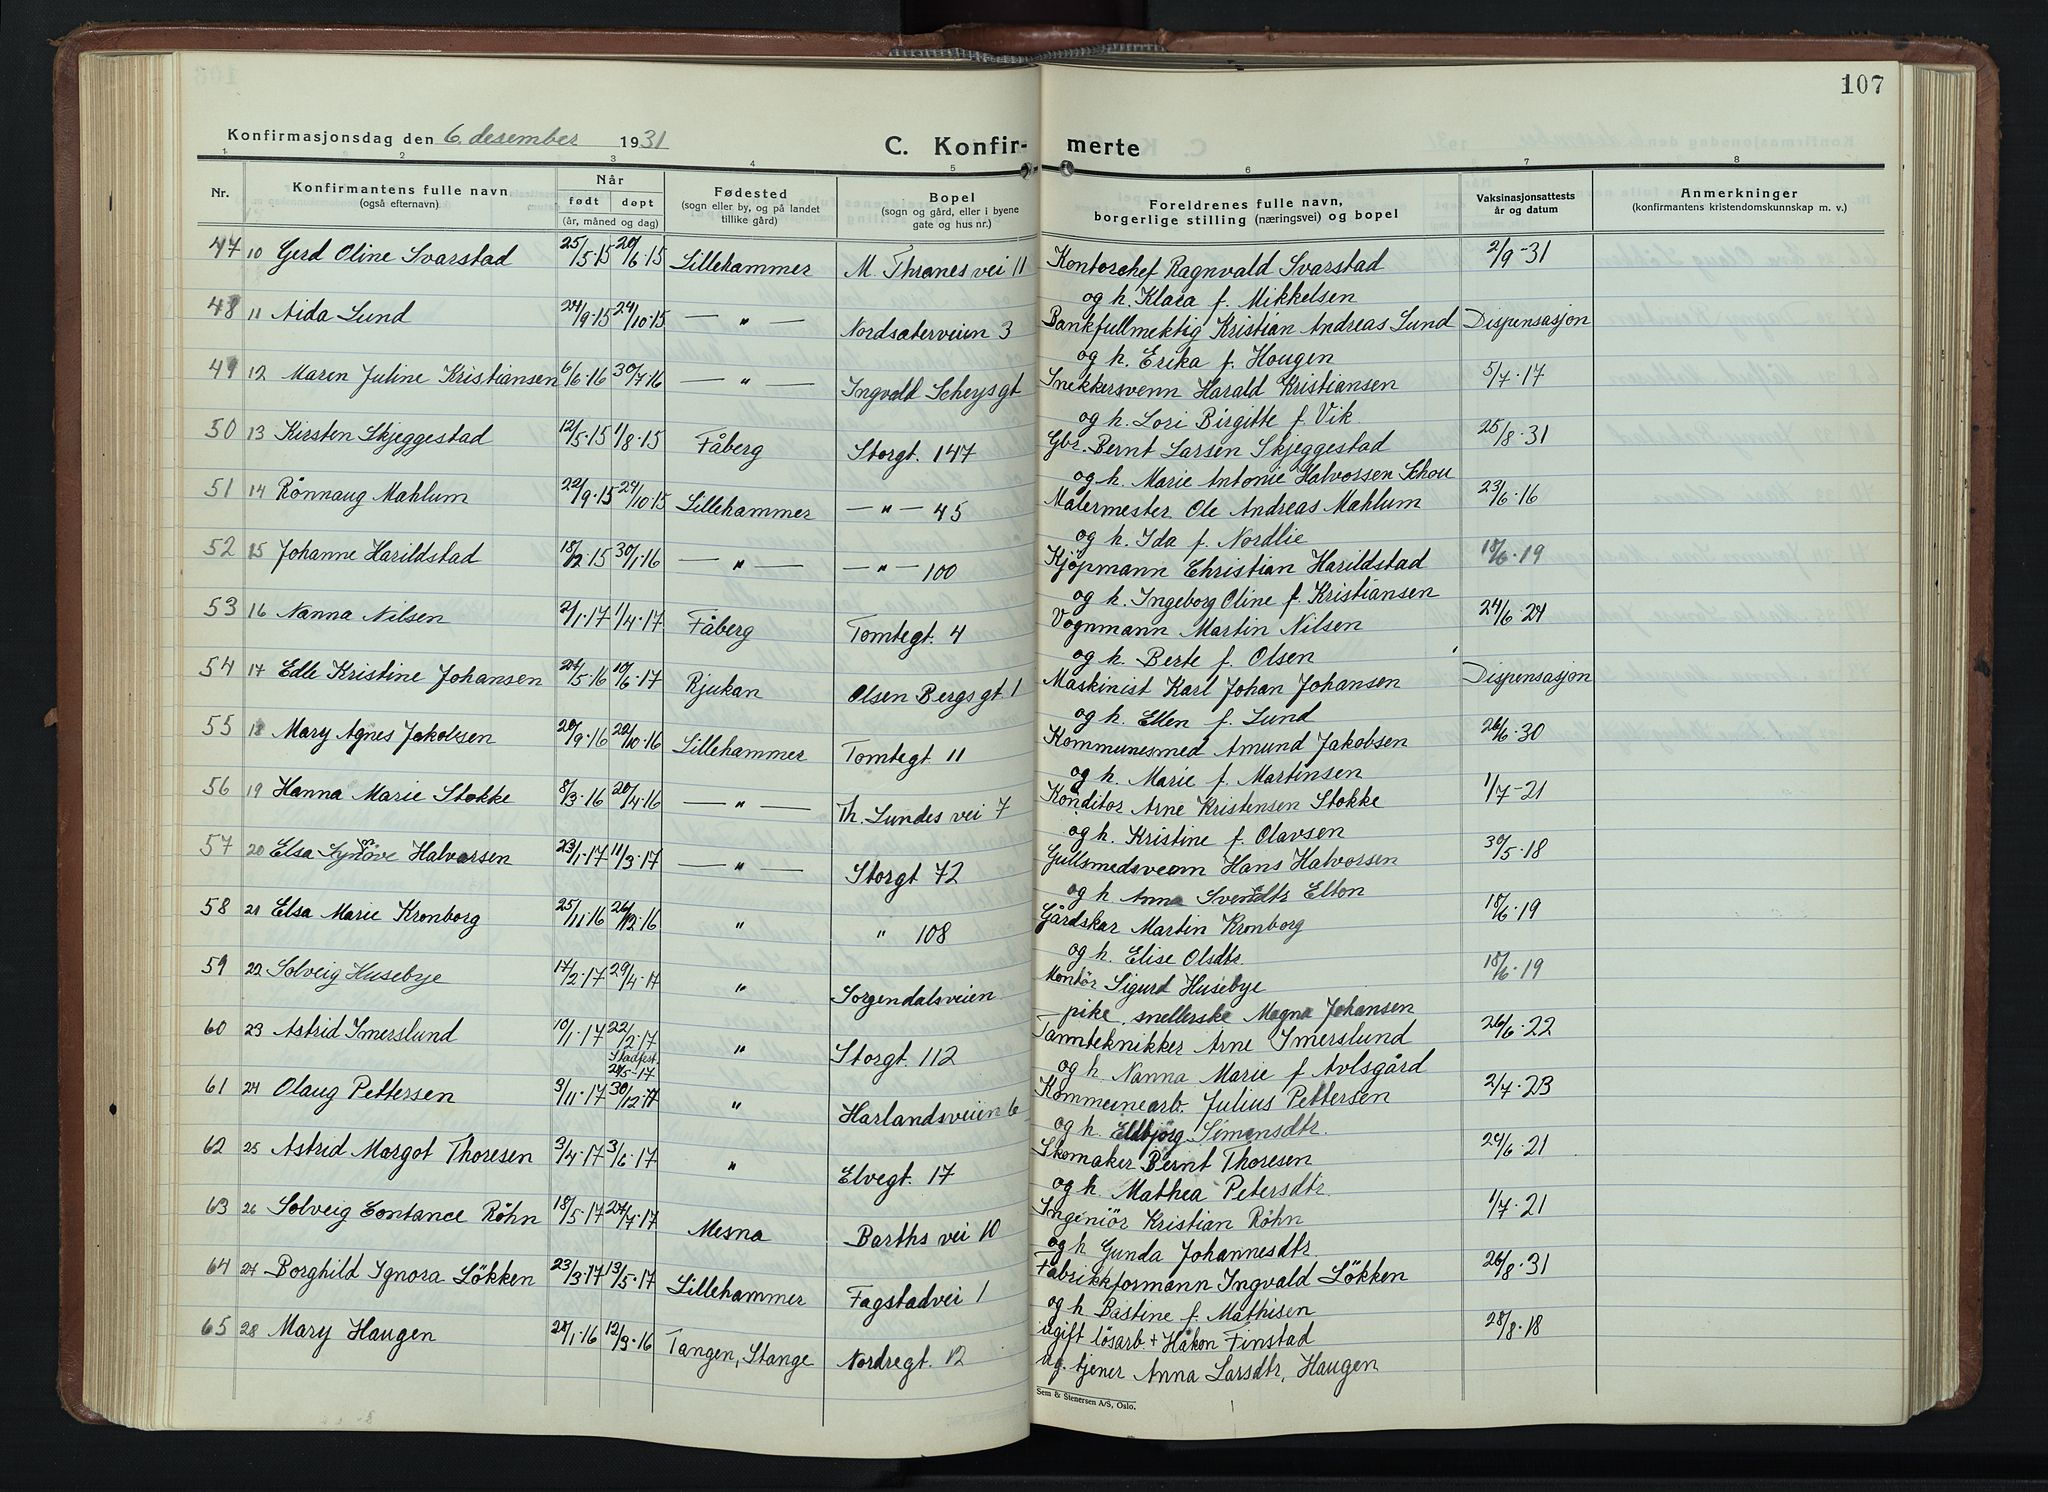 107
Konfirmasjonsdag den 6 desember 1931
C. Konfirmerte
1 2 3 4 5 6 7 8
Nr.
Konfirmantens fulle navn
(også efternavn)
Når
født døpt
(år, måned og dag)
Fødested
(sogn eller by, og på landet
tillike gård)
Bopel
(sogn og gård, eller i byene
gate og hus nr.)
Foreldrenes fulle navn,
borgerlige stilling (næringsvei) og bopel
Vaksinasjonsattests
år og datum
Anmerkninger
(konfirmantens kristendomskunnskap m. v.)
47 10 Gerd Oline Svarstad 25/5·15 20/6·15 Lillehammer M. Thranes vei 11 Kontorchef Ragnvald Svarstad 2/9-31
og h. Klara f. Mikkelsen
48 11 Aida Lund 24/9·15 24/10·15 — " — Nordsæterveien 3 Bankfullmektig Kristian Andreas Lund Dispensasjon
og h. Erika f. Hougen
49 12 Maren Juline Kristiansen 6/6·16 30/7·16 — " — Ingvald Scheysgt Snekkersvenn Harald Kristiansen 5/7·17
og h. Lori Birgitte f. Vik
50 13 Kirsten Skjeggestad 12/5·15 1/8·15 Fåberg Storgt. 147 Gbr. Bernt Larsen Skjeggestad 25/8·31
og h. Marie Antonie Halvorssen Schou
51 14 Rønnaug Mahlum 22/9·15 24/10·15 Lillehammer — " — 45 Malermester Ole Andreas Mahlum 23/6·16
og h. Ida f. Nordlie
52 15 Johanne Harildstad 18/12·15 30/1·16 — " — — " — 100 Kjøpmann Christian Harildstad 18/6·19
og h. Ingeborg Oline f. Kristiansen
53 16 Nanna Nilsen 2/1·17 1/4·17 Fåberg Tomtegt. 4 Vognmann Martin Nilsen 24/6·24
og h. Berte f. Olsen
54 17 Edle Kristine Johansen 24/5·16 10/6·17 Rjukan Olsen Bergs gt 1 Maskinist Karl Johan Johansen Dispensasjon
og h. Ellen f. Lund
55 18 Mary Agnes Jakobsen 20/9·16 22/10·16 Lillehammer Tomtegt 11 Kommunesmed Amund Jakobsen 26/6·30
og h. Marie f. Martinsen
56 19 Hanna Marie Stokke 8/3·16 20/4·16 — " — Th. Lundes vei 7 Konditor Arne Kristensen Stokke 1/7-21
og h. Kristine f. Olavsen
57 20 Elsa Synnöve Halvorsen 23/1·17 11/3·17 — " — Storgt 72 Gullsmedsvenn Hans Halvorsen 30/5·18
og h. Anna Svendtr Elton
58 21 Elsa Marie Kronborg 25/11·16 26/12·16 " " 108 Gårdskar Martin Kronborg 18/6·19
og h. Elise Olsdtr.
59 22 Solveig Husebye 17/2·17 29/4·17 " Sorgendalsveien Montør Sigurd Husebye 18/6·19
pike snellerske Magna Johansen
60 23 Astrid Imerslund 10/1·17 22/2·17 " Storgt. 112 Tannteknikker Arne Imerslund 26/6·22
Stadfest. 24/5-17 og h. Nanna Marie f. Avlsgård
61 24 Olaug Pettersen 3/11·17 30/12·17 " Harlandsveien 6 Kommunearb. Julius Pettersen 2/7·23
og h. Eldbjørg Simensdtr.
62 25 Astrid Margot Thoresen 3/4·17 3/6·17 " Elvegt. 17 Skomaker Bernt Thoresen 24/6·21
og h. Mathea Petersdtr.
63 26 Solveig Contance Röhn 18/5·17 24/7·17 Mesna Barths vei 10 Ingeniör Kristian Röhn 1/7·21
og h. Gunda Johannesdtr.
64 27 Borghild Ignora Lökken 23/3·17 13/5·17 Lillehammer Fagstadvei 1 Fabrikkformann Ingvald Lökken 26/8·31
og h Bastine f. Mathisen
65 28 Mary Haugen 24/1·16 12/3·16 Tangen, Stange Nordregt. 12 ugift lösarb. + Håkon Finstad 28/8·18
ug. tjener Anna Larsdtr, Haugen
Sem & Stenersen A/S, Oslo.